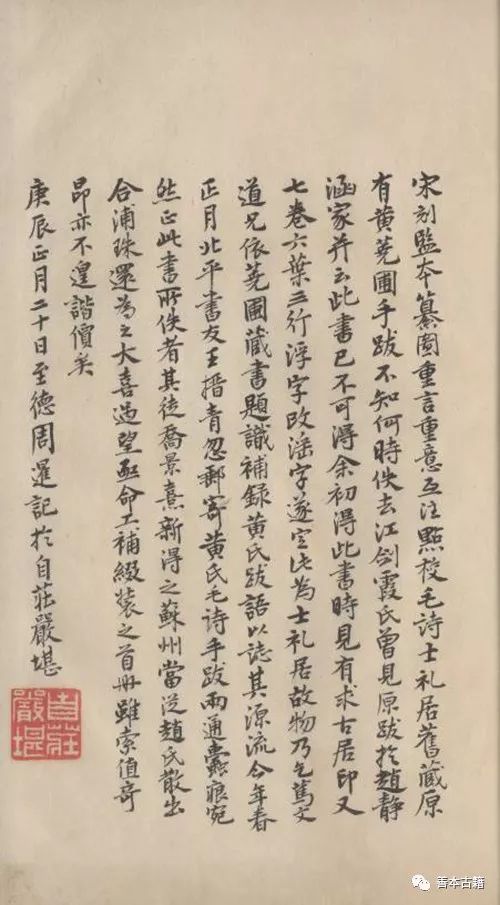 宋刻監本纂圖重言重意互注點校毛詩士礼居舊藏原
有黄蕘圃手跋不知何時佚去江劍霞氏曾見原跋於趙静
涵家并云此書已不可得余初得此書時見有求古居印又
七卷六葉三行浮字改滛字遂定此為士礼居故物乃乞篤文
道兄依蕘圃藏書題識補録黄氏跋語以誌其源流今年春
正月北平書友王搢青忽郵寄黄氏毛詩手跋兩通蠹痕宛
然正此書所佚者其徒喬景熹新得之蘇州當泛趙氏散出
合浦珠還為之大喜過望亟命工補綴裝之首册雖索值奇
昂亦不遑諧價矣
庚辰正月二十日至德周暹記於自莊嚴堪
自莊嚴堪
善本古籍